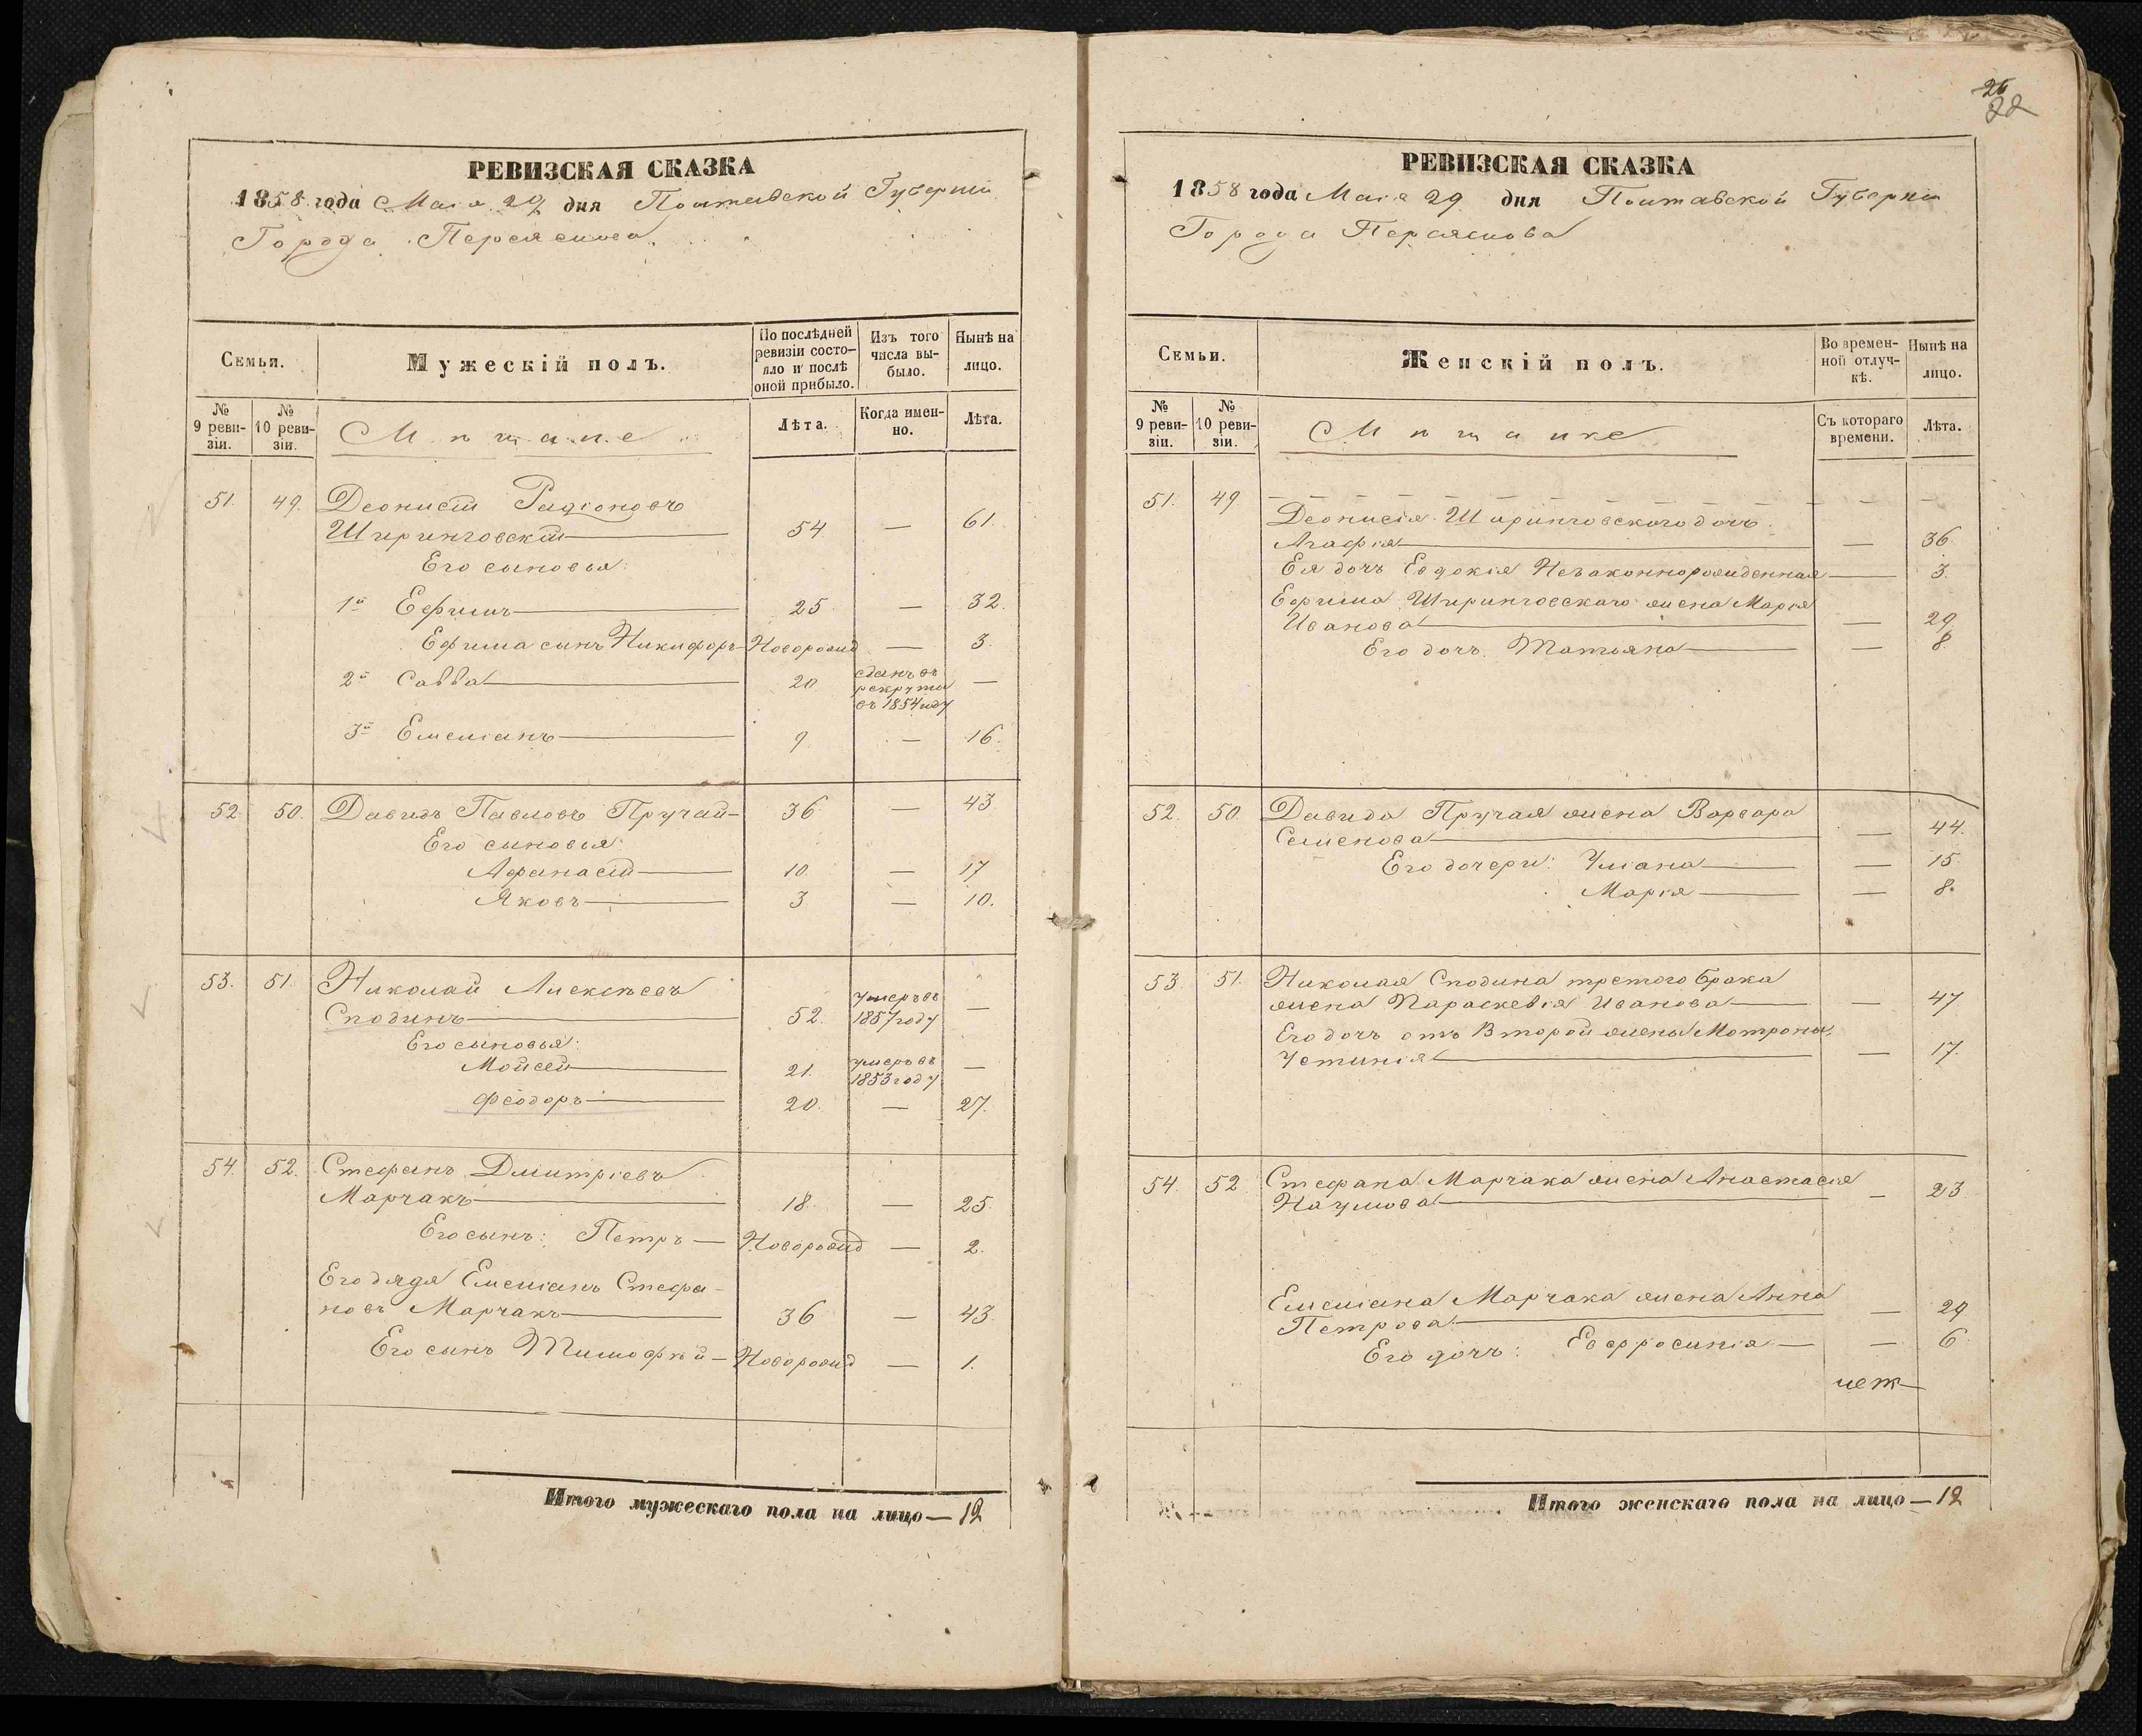 РЕВИЗСКАЯ СКАЗКА
1858 года Маія 29 дня Полтавской Губерніи
Города Переяслова
Семьи.
Мужескій полъ.
По послѣдней ревизіи состо-
яло и послѣ оной прибыло.
Изъ того числа вы-
было.
Нынѣ на лицо.
№ 9 реви-
зіи.
№ 10 реви-
зіи.
Мѣщане
Лѣта.
Когда имен-
но.
Лѣта.
51. 49. Деонисій Радіоновъ
Ширинговскій 54 — 61.
Его сыновья:
1й Ефимъ 25 — 32.
Ефима сынъ Никифоръ Новорожд — 3.
2й Савва 20 сданъ въ рекруты въ 1854 году —
3й Емеліанъ 9 — 16.
52. 50. Давидъ Павловъ Пручай 36 — 43
Его сыновья:
Афанасій 10. — 17
Яковъ 3 — 10.
53. 51 Николай Алексѣевъ
Сподинъ 52. умеръ въ 1857 году —
Его сыновья:
Мойсей 21. умеръ въ 1853 году —
Феодоръ 20. — 27.
54. 52. Стефанъ Дмитріевъ
Марчакъ 18. — 25.
Его сынъ: Петръ — Новорожд — 2.
Его дядя Емеліанъ Стефа-
новъ Марчакъ 36 — 43.
Его сынъ Тимофѣй — Новорожд — 1.
Итого мужескаго пола на лицо — 12
26
22
РЕВИЗСКАЯ СКАЗКА
1858 года Маія 29 дня Полтавской Губерніи
Города Переяслова
Семьи.
Женскій полъ.
Во времен-
ной отлуч-
кѣ.
Нынѣ на лицо.
№ 9 реви-
зіи.
№ 10 реви-
зіи.
Мѣщанке
Съ котораго времени.
Лѣта.
51. 49
Деонисія Ширинговского дочь
Агафія — 36.
Ея дочь Евдокія Незаконнорожденная — 3.
Ефима Ширинговскаго жена Марія
Иванова — 29
Его дочь Татьяна — 8.
52. 50. Давида Пручая жена Варвара
Семенова — 44.
Его дочери: Уліана — 15.
Марія — 8.
53 51. Николая Сподина третого брака
жена Параскевія Иванова — 47
Его дочь отъ Второй жены Мотроны.
Устинія — 17.
54. 52 Стефана Марчака жена Анастасія
Наумова — 23
Емеліана Марчака жена Анна
Петрова — 29
Его дочь: Евфросинія — 6
Итого женскаго пола на лицо — 12